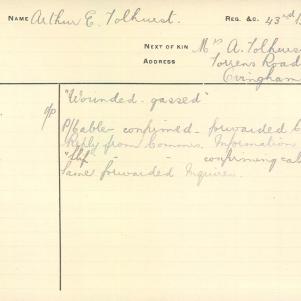 NAME Arthur E. Tolhurst. REG. &C. 43rd B
NEXT OF KIN Mrs A. Tolhurs
ADDRESS Torrens Road
Ovingham
"Wounded - gassed"
P/Cable - confirmed - forwarded
Reply from Commns. Information
" - - confirming cab
Same forwarded Inquirer.